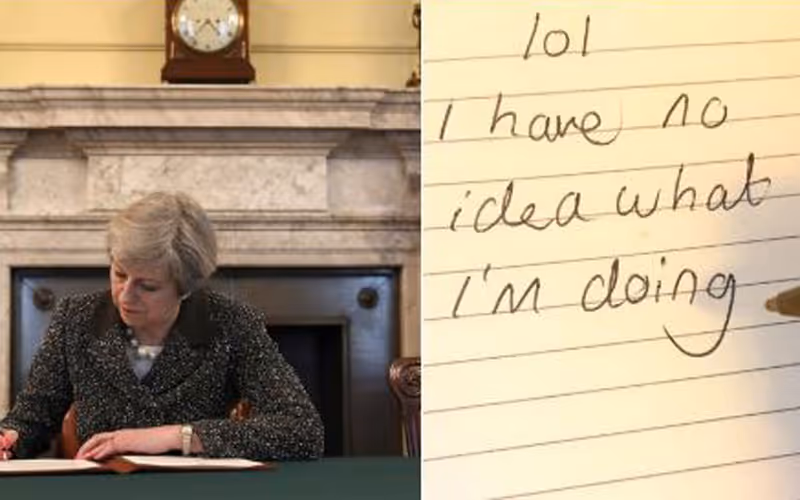 lol
I have no
idea what
I'm doing